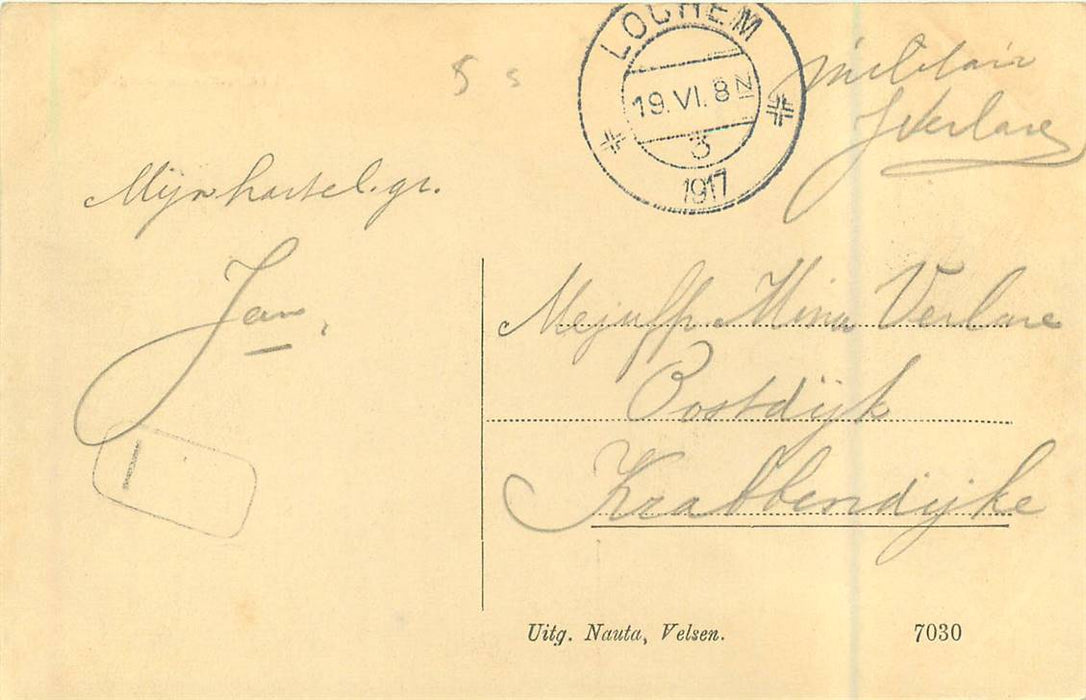 LOCHEM
19.VI.8N
3
1917
5 s
Militair
JVerlare
Mijn hartel. gr.
Jan,
Mejuffr Mina Verlare
Oostdijk
Krabbendijke
1
Uitg. Nauta, Velsen.
7030